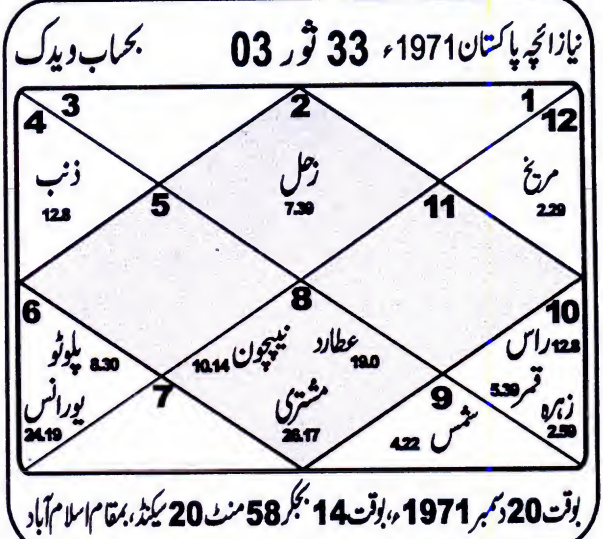 نیازائچہ پاکستان1971ء 33 ثور 03 بحساب ویدک
2
3
4
1
12
ذنب
12.8
زحل
7.39
مریخ
2.29
5
11
6
8
10
پلوٹو 8.30
یورانس
24.19
نیپچون 10.14
عطارد
19.0
مشتری
26.17
راس 12.8
قمر 5.39
زہرہ
2.59
7
9
شمس 4.22
بوقت20دسمبر1971ء،بوقت14بجکر58منٹ20سیکنڈ،بمقام اسلام آباد